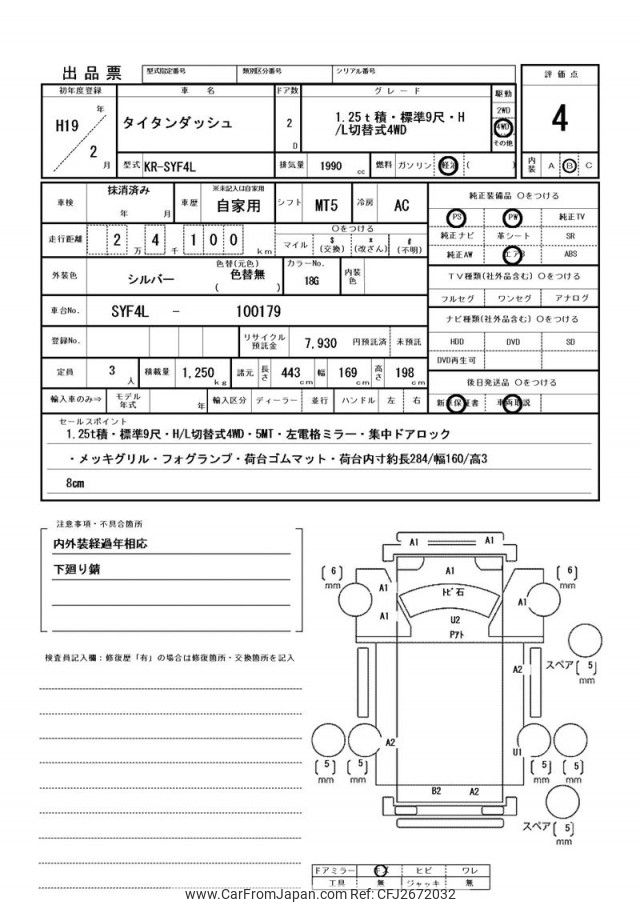 出品票
型式指定番号 類別区分番号 シリアル番号
評価点
4
内装 A B C
初年度登録 車名 ドア数 グレード 駆動
H19 年 2 月
タイタンダッシュ
2 D
1.25t積・標準9尺・H
/L切替式4WD
2WD
4WD
その他
型式 KR-SYF4L 排気量 1990 cc 燃料 ガソリン 軽油 ( )
車検 抹消済み 年 月 車歴 ※未記入は自家用 自家用 シフト MT5 冷房 AC
走行距離 2 万 4 千 1 0 0 km
〇をつける
マイル $(交換) *(改ざん) #(不明)
外装色 シルバー 色替(元色) 色替無 ( ) カラーNo. 18G 内装色
車台No. SYF4L - 100179
登録No. リサイクル預託金 7,930 円預託済 未預託
定員 3 人 積載量 1,250 kg 諸元 長さ 443 cm 幅 169 cm 高さ 198 cm
輸入車のみ⇒ モデル年式 年 輸入区分 ディーラー 並行 ハンドル 左 右
純正装備品 〇をつける
PS PW 純正TV
純正ナビ 革シート SR
純正AW エアB ABS
TV種類(社外品含む) 〇をつける
フルセグ ワンセグ アナログ
ナビ種類(社外品含む) 〇をつける
HDD DVD SD
DVD再生可
後日発送品 〇をつける
新車保証書 車両取説
セールスポイント
1.25t積・標準9尺・H/L切替式4WD・5MT・左電格ミラー・集中ドアロック
・メッキグリル・フォグランプ・荷台ゴムマット・荷台内寸約長284/幅160/高3
8cm
注意事項・不具合箇所
内外装経過年相応
下廻り錆
検査員記入欄：修復歴「有」の場合は修復箇所・交換箇所を記入
A1 A1
A1
トビ石
U2
Pアト
A1
A1
A1
(6) mm
(6) mm
スペア (5) mm
A2
A2
U1
(5) mm
(5) mm
(5) mm
(5) mm
B2 A2
スペア (5) mm
ドアミラー キズ ヒビ ワレ
工具 無 ジャッキ 無
www.CarFromJapan.com Ref: CFJ2672032